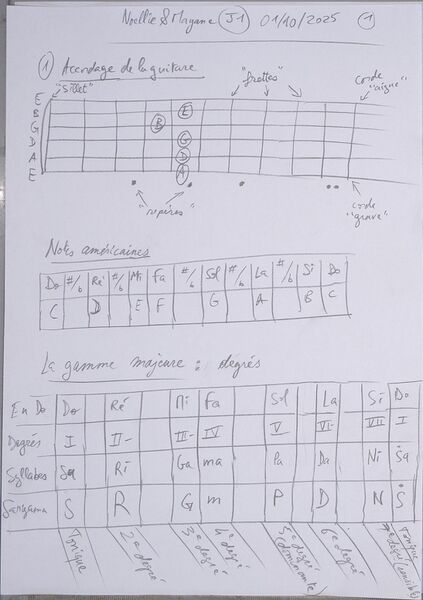 Noellie & Mayane J1 01/10/2025 1
1 Accordage de la guitare
"sillet" "frettes" corde "aigüe"
E
B
G
D
A
E
E
B
G
D
A
"repères" corde "grave"
Notes américaines
Do #/b Ré #/b Mi Fa #/b Sol #/b La #/b Si Do
C D E F G A B C
La gamme majeure : degrés
En Do Do Ré Mi Fa Sol La Si Do
Degrés I II- III- IV V VI- VII I
Syllabes Sa Ri Ga ma Pa Da Ni Sa
Sargama S R G m P D N S
Tonique 2e degré 3e degré 4e degré 5e degré (dominante) 6e degré 7e degré (sensible) Tonique